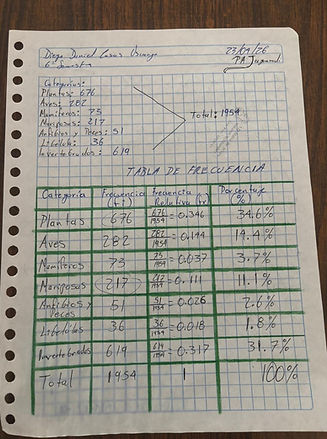 Diego Daniel Casas 23/04/26
6° Semestre P.A. Juanandi
Categorias:
Plantas: 676
Aves: 282
Mamiferos: 73
Mariposas: 217
Anfibios y Peces: 51
Libelula: 36
Invertebrados: 619
Total: 1954
TABLA DE FRECUENCIA
Categoria Frecuencia (fi) Frecuencia Relativa (fr) Porcentaje (%)
Plantas 676 676/1954 = 0.346 34.6%
Aves 282 282/1954 = 0.144 14.4%
Mamiferos 73 73/1954 = 0.037 3.7%
Mariposas 217 217/1954 = 0.111 11.1%
Anfibios y Peces 51 51/1954 = 0.026 2.6%
Libelulas 36 36/1954 = 0.018 1.8%
Invertebrados 619 619/1954 = 0.317 31.7%
Total 1954 1 100%